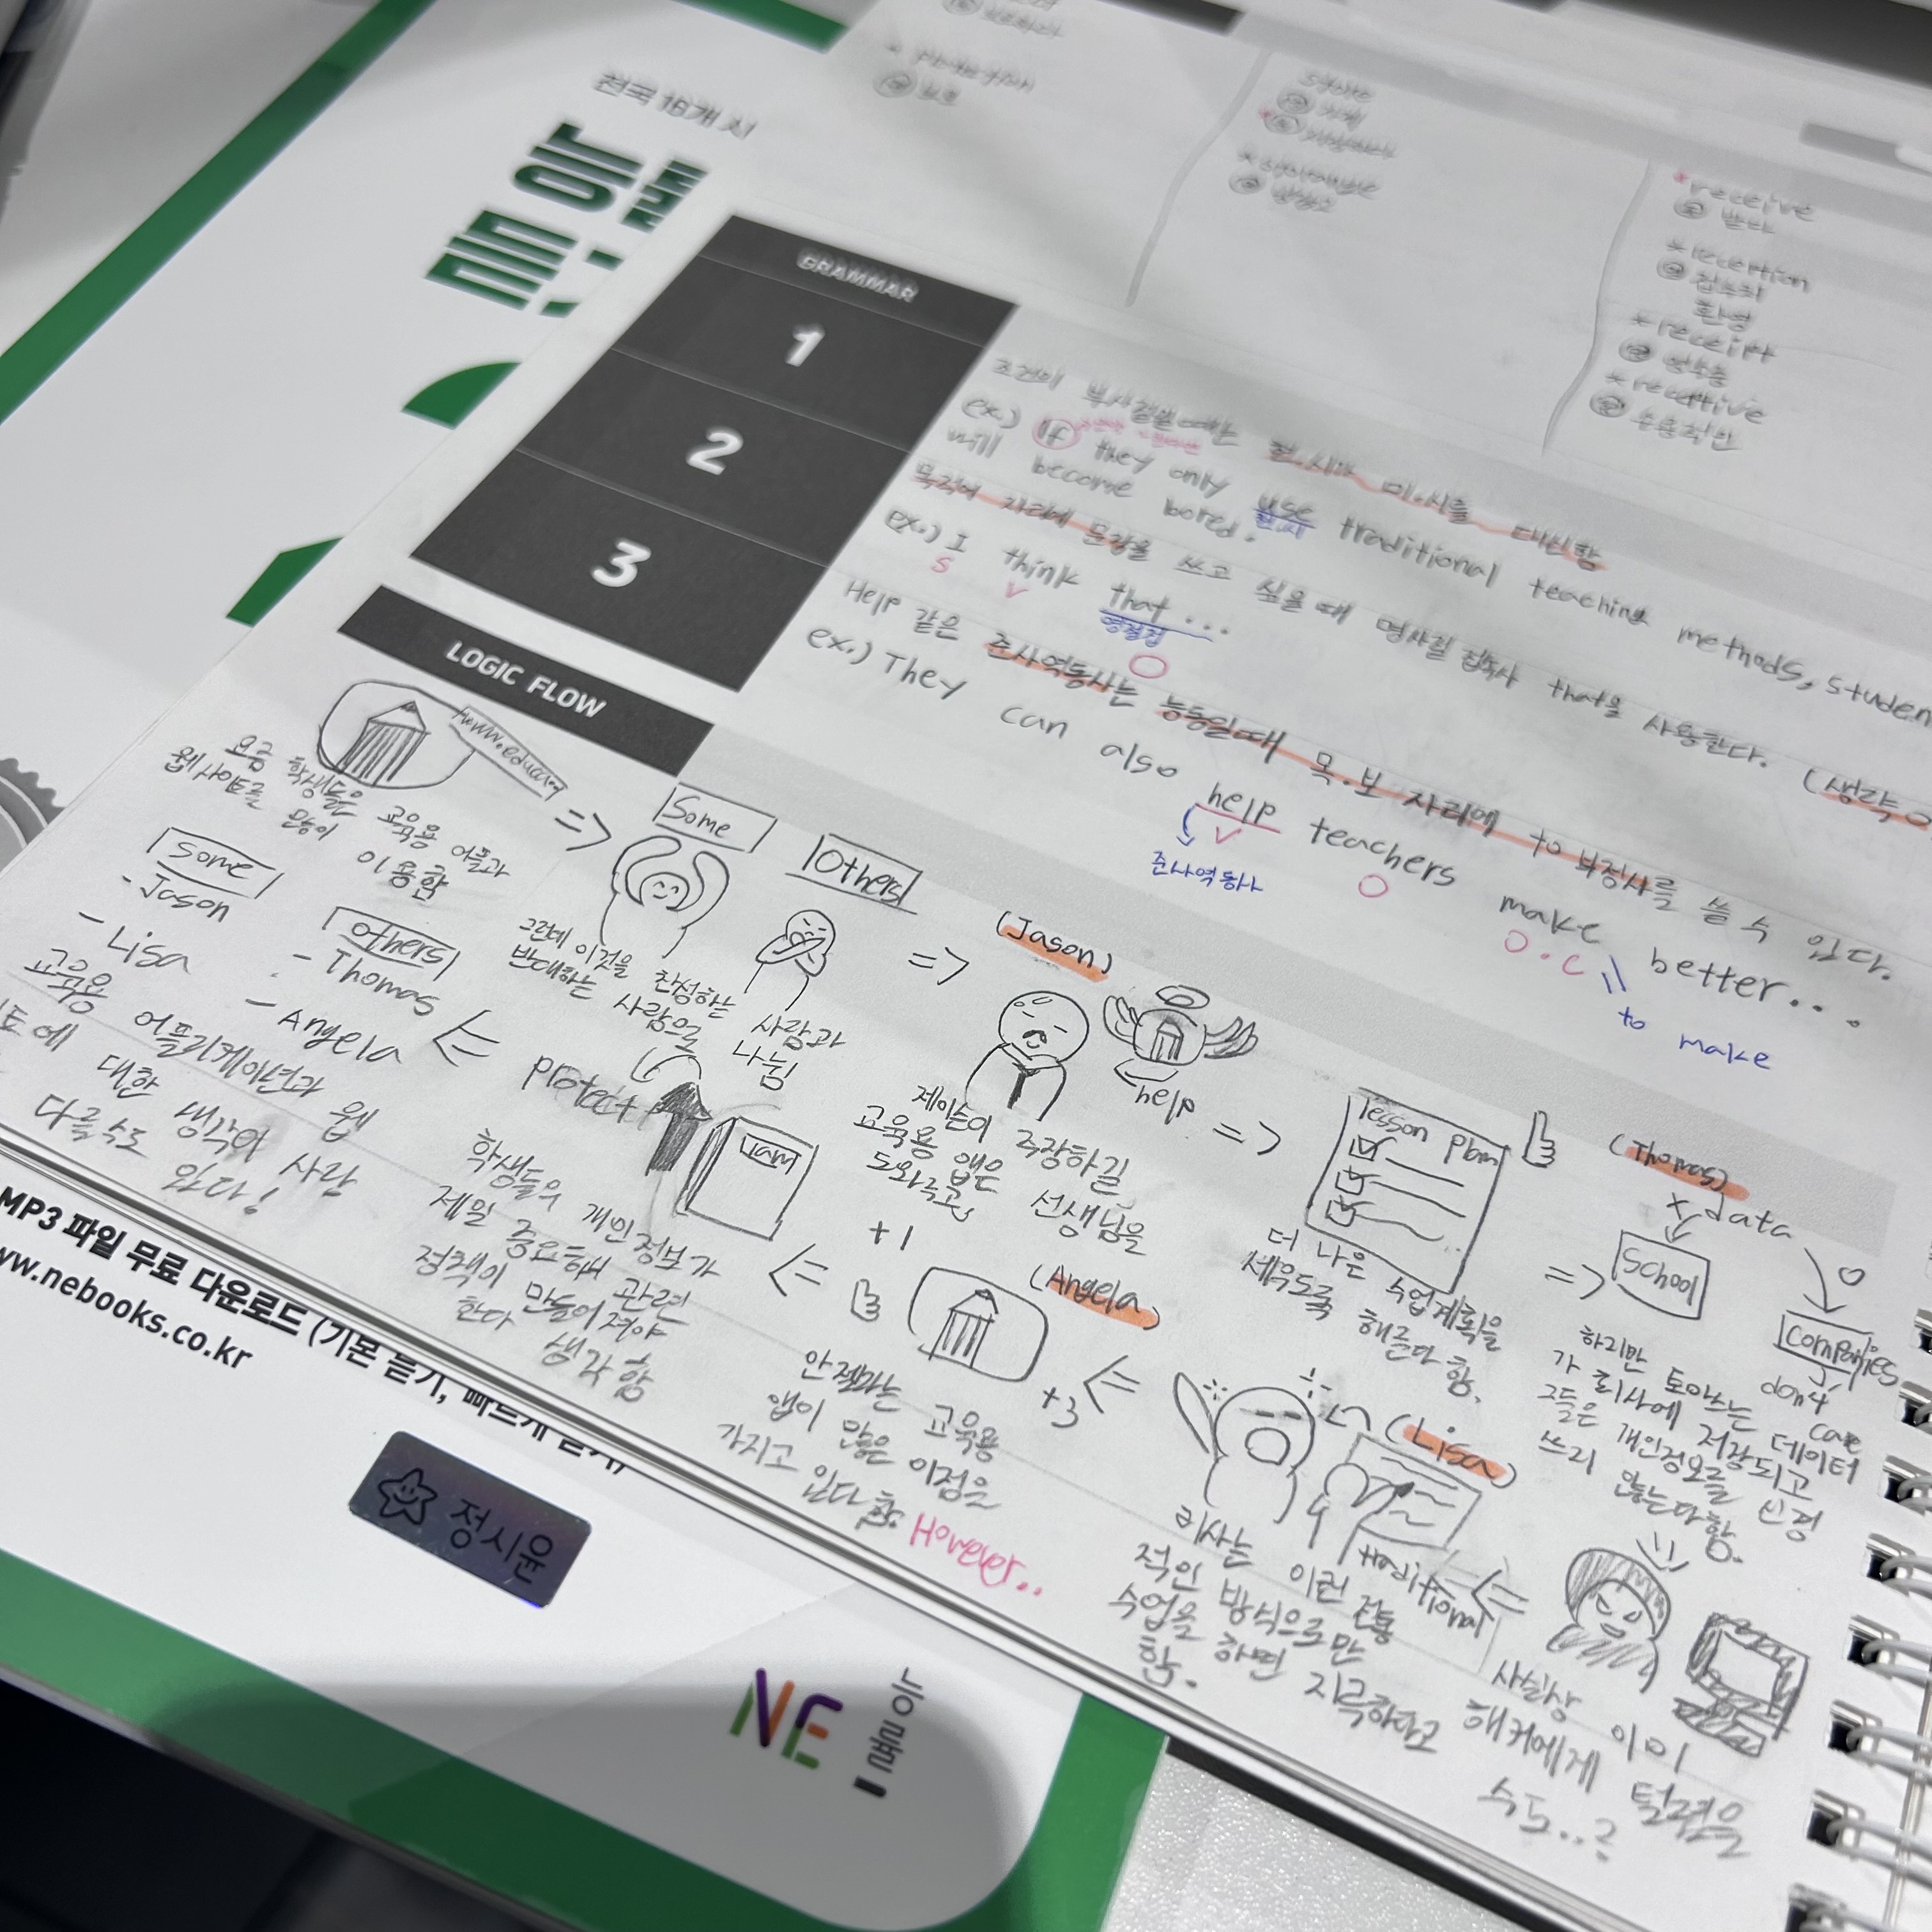 전국 16개 시
능률
GRAMMAR
1
2
3
receive
받다
reception
접수처
환영
receipt
영수증
receptive
수용적인
조건의 부사절일 때는 현.시가 미.시를 대신함
ex.) If they only use traditional teaching methods, studen
현.시
will become bored.
목적어 자리에 문장을 쓰고 싶을 때 명사절 접속사 that을 사용한다. (생략 O
ex.) I think that ...
S V 명절접
O
Help 같은 준사역동사는 능동일 때 목.보 자리에 to 부정사를 쓸 수 있다.
ex.) They can also help teachers make better...
V O O.C
준사역동사
to make
LOGIC FLOW
요즘 학생들은 교육용 어플과
웹사이트를 많이 이용함
=>
Some
Others
그런데 이것을 찬성하는 사람과
반대하는 사람으로 나뉨
=>
(Jason)
help
제이슨이 주장하길
교육용 앱은 선생님을
도와주고
+1
=>
lesson plan
더 나은 수업계획을
세우도록 해준다 함.
=>
(Thomas)
data
School
Companies
don't care
하지만 토마스는 데이터
가 회사에 저장되고
그들은 개인정보를 신경
쓰지 않는다 함.
사실상 이미
해커에게 털렸을
수도..?
<=
(Lisa)
traditional
리사는 이런 전통
적인 방식으로만
수업을 하면 지루하다고
함.
<=
(Angela)
+3
안젤라는 교육용
앱이 많은 이점을
가지고 있다 함.
However..
<=
protect
학생들의 개인정보가
제일 중요해 관련
정책이 만들어져야
한다 생각함
<=
some
- Jason
- Lisa
others
- Thomas
- Angela
교육용 어플리케이션과 웹
트에 대한 생각이 사람
다를 수도 있다!
MP3 파일 무료 다운로드 (기본 듣기, 빠르게 듣기)
www.nebooks.co.kr
정시윤
NE 능률